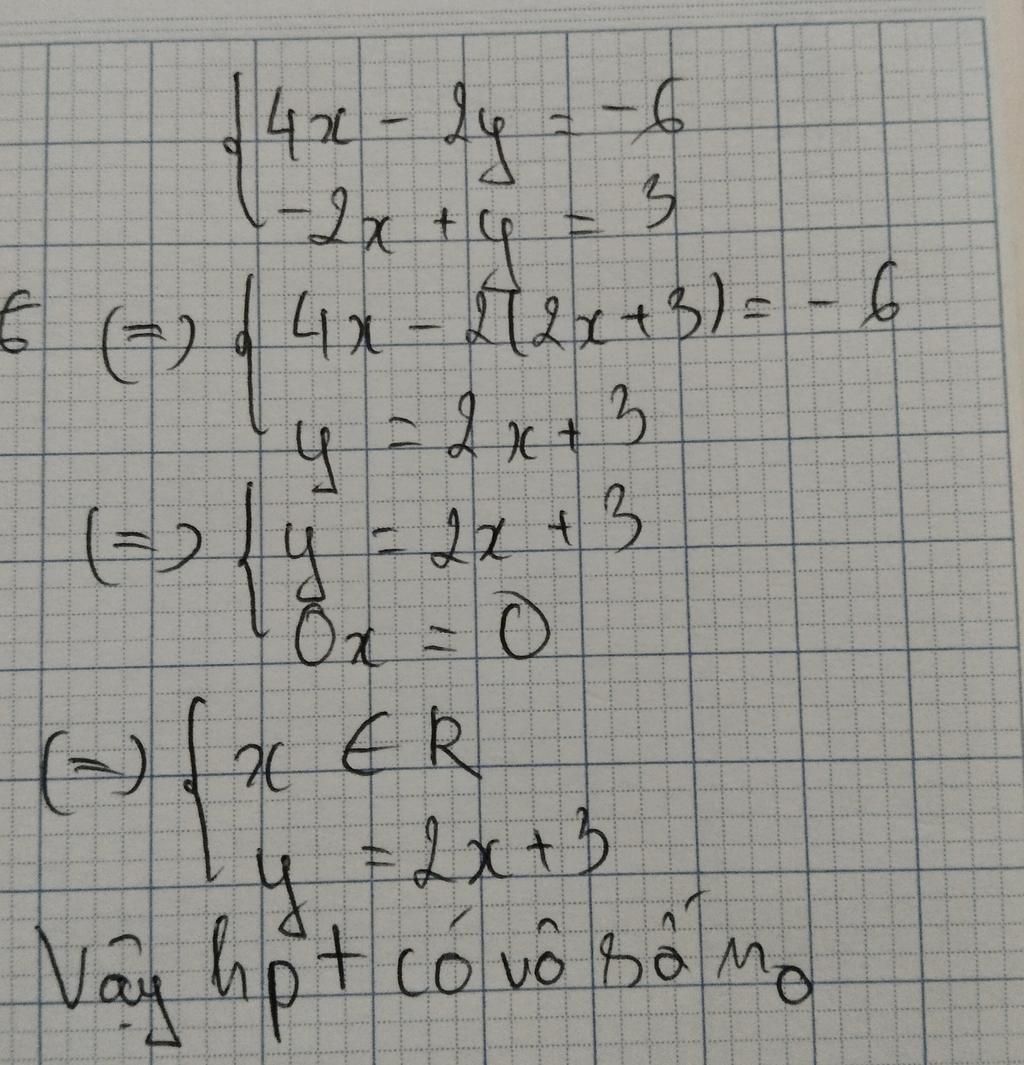 { 4x - 2y = -6
-2x + y = 3
(=) { 4x - 2(2x + 3) = - 6
y = 2x + 3
(=) { y = 2x + 3
0x = 0
(=) { x ∈ R
y = 2x + 3
Vậy hpt có vô số no